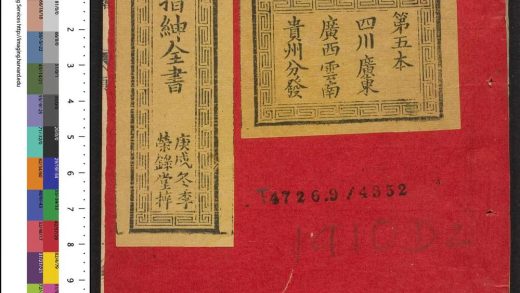 第五本
四川廣東
廣西雲南
貴州分發
搢紳全書
庚戌冬季
榮錄堂梓
T4726.9/4352
2
3
4
5
6
7
8
9